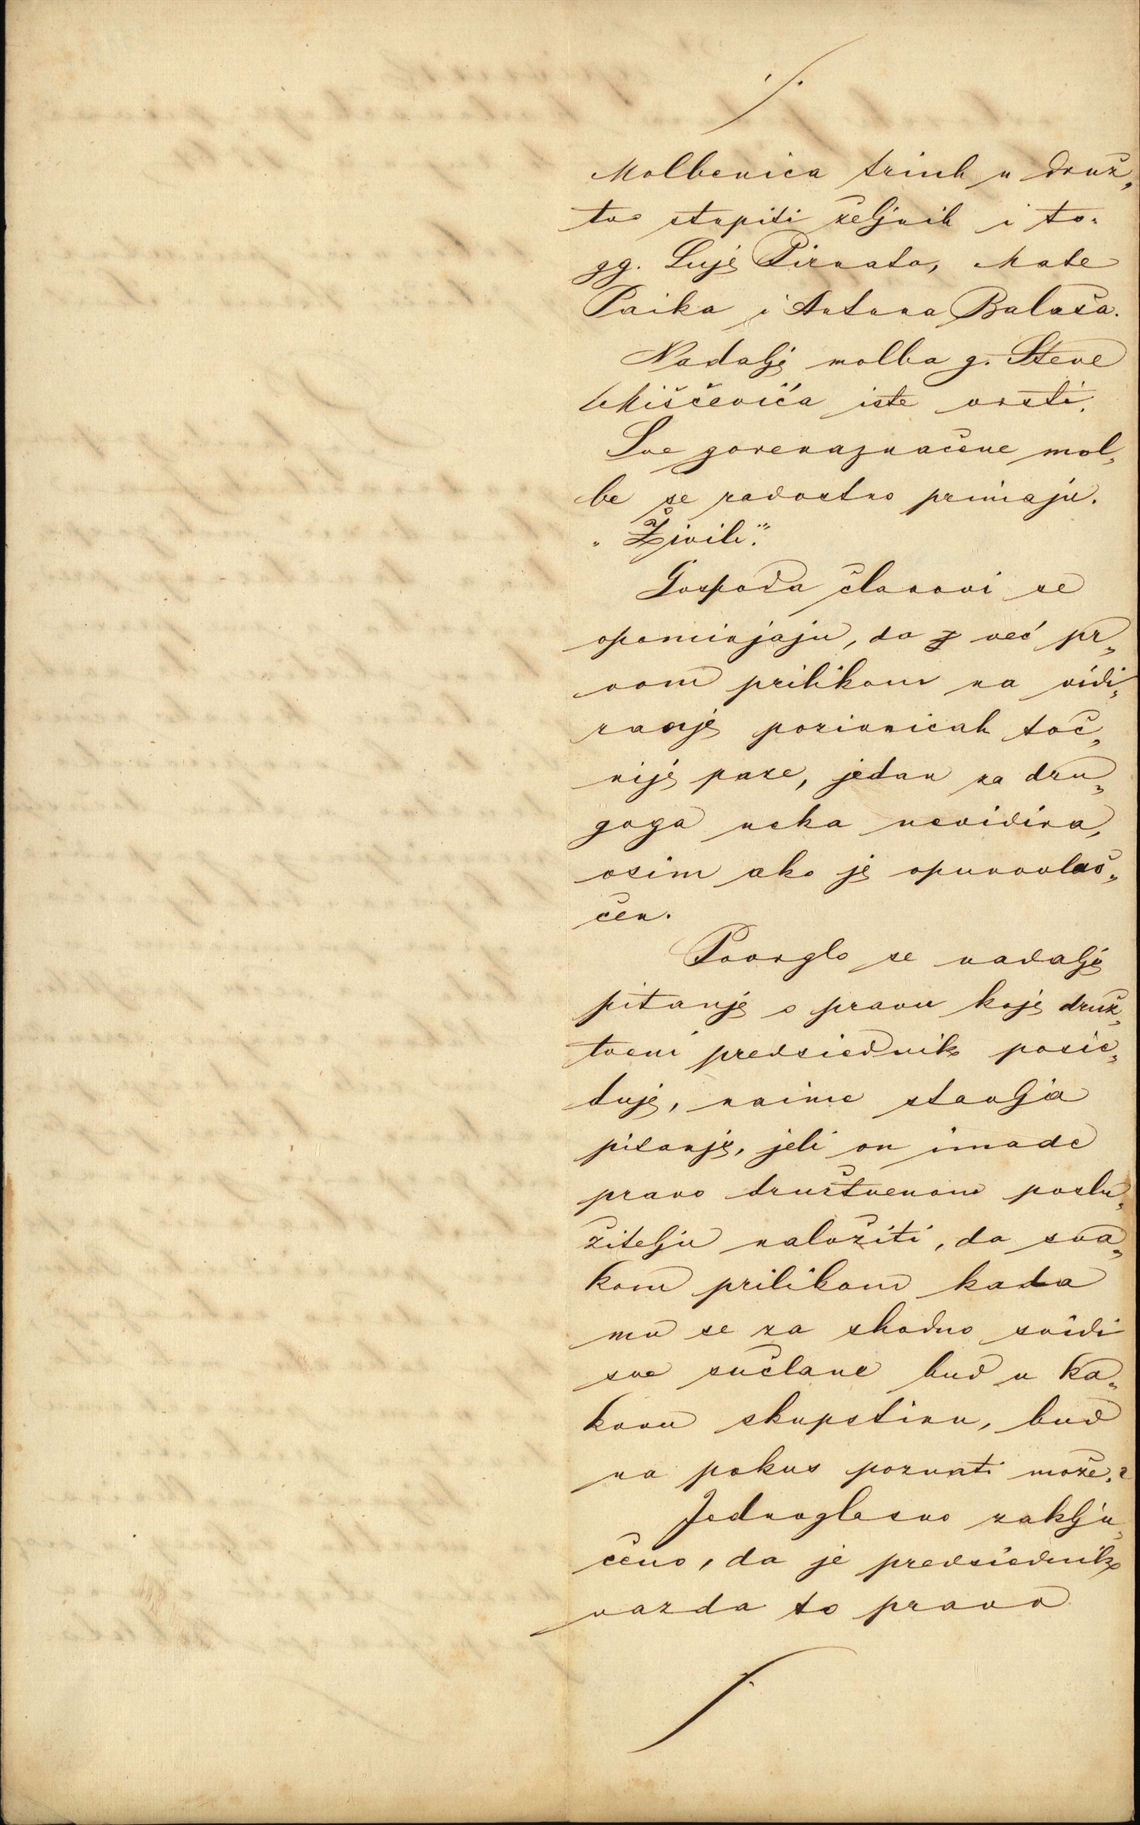 ./.
Molbenica trih u druž„
tvo stupiti željnih i to.
gg. Luje Pirnata, Mate
Paika i Antuna Balaša.
Nadalje molba g. Steve
Miščevića iste vrsti.
Sve gorenaznačene mol„
be se radostno primaju.
„Živili."
Gospoda članovi se
opominjaju, da već pr„
vom prilikom na vidi„
ranje pozivnicah toč„
nije paze, jedan za dru„
goga neka nevidira,
osim ako je opunovlaš„
čen.
Povrglo se nadalje
pitanje o pravu koje druž„
tveni predsiednik posie„
duje, naime stavlja
pitanje, jeli on imade
pravo družtvenom poslu„
žitelju naložiti, da sva„
kom prilikom kada
mu se za shodno svidi
sve sučlane bud u ka„
kovu skupštinu, bud
na pokus pozvati može.?
Jednoglasno zaklju„
čeno, da je predsiednik
vazda to pravo
./.